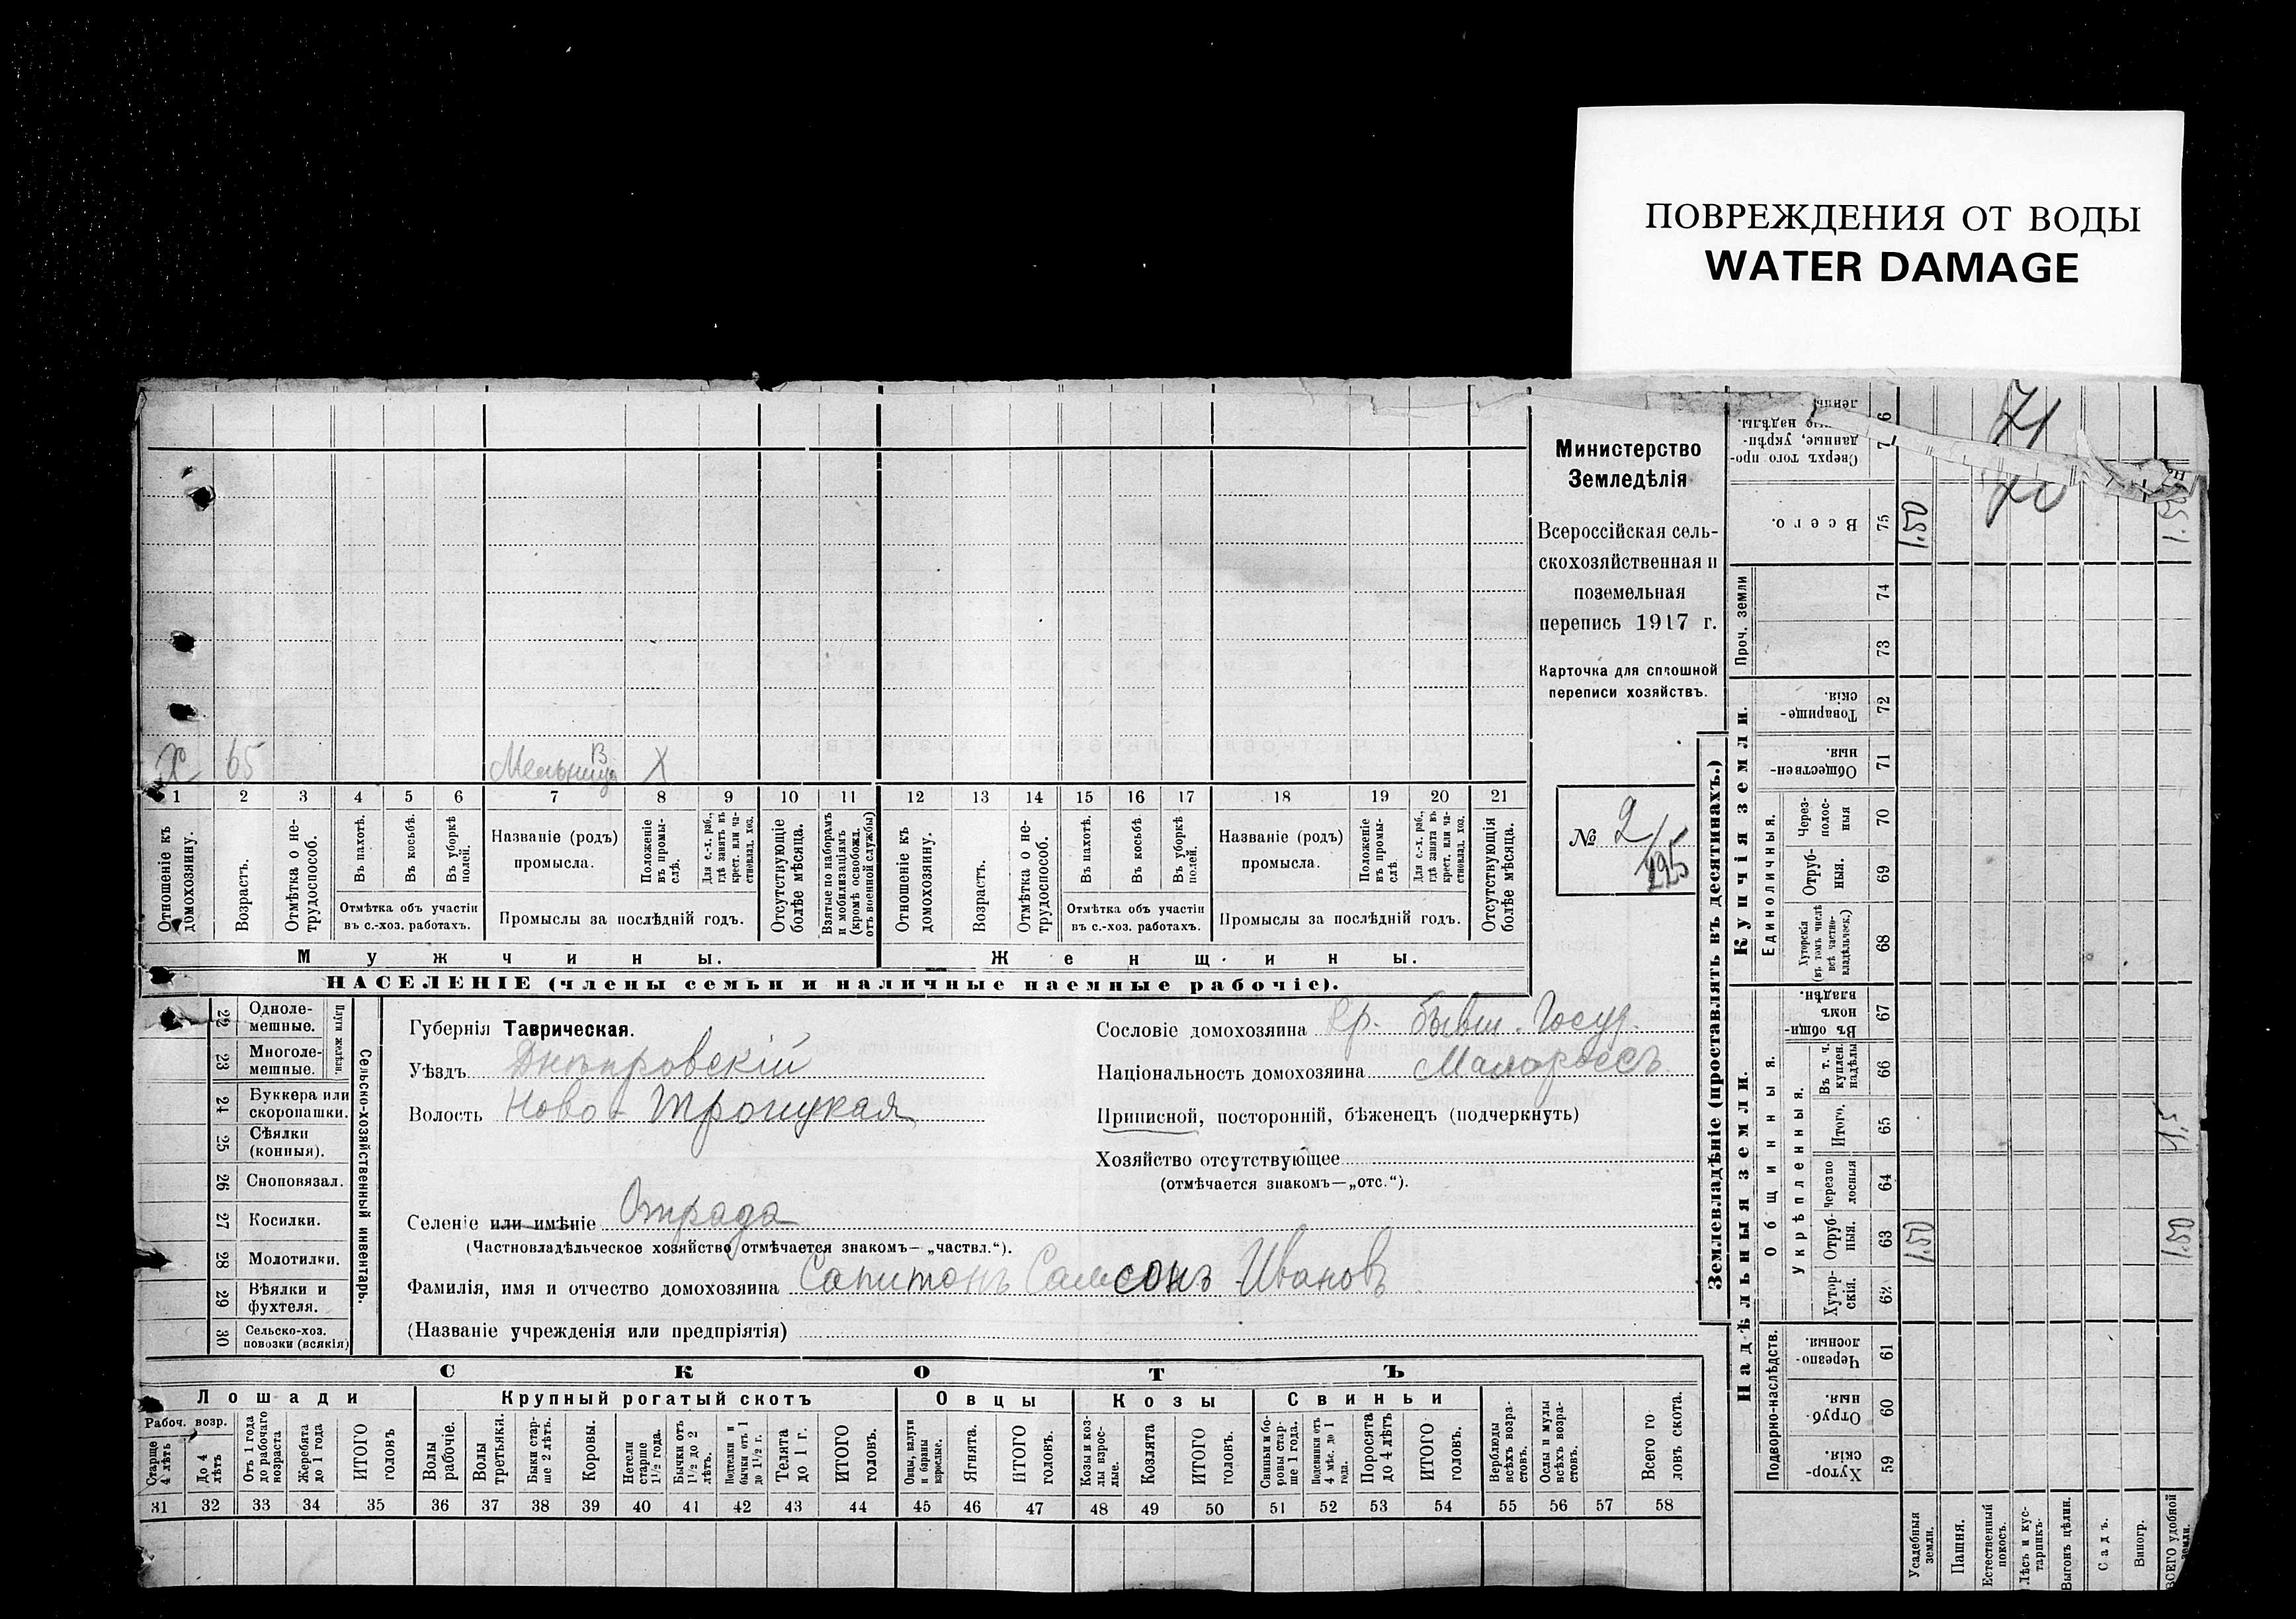 ПОВРЕЖДЕНИЯ ОТ ВОДЫ
WATER DAMAGE
Министерство
Земледѣлія
Всероссійская сель-
скохозяйственная и
поземельная
перепись 1917 г.
Карточка для сплошной
переписи хозяйствъ.
№ 2/
295
Х 65 Мельница В Х
1 2 3 4 5 6 7 8 9 10 11 12 13 14 15 16 17 18 19 20 21
Отношеніе къ домохозяину.
Возрастъ.
Отмѣтка о не-трудоспособ.
Въ пахотѣ.
Въ косьбѣ.
Въ уборкѣ полей.
Отмѣтка объ участіи
въ с.-хоз. работахъ.
Названіе (родъ)
промысла.
Положеніе въ промы-слѣ.
Для с.-х. раб., гдѣ занятъ въ крест. или ча-стновлад. хоз.
Промыслы за послѣдній годъ.
Отсутствующіе болѣе мѣсяца.
Взятые по наборамъ и мобилизаціямъ (кромѣ освобожд. отъ военной службы)
Отношеніе къ домохозяину.
Возрастъ.
Отмѣтка о не-трудоспособ.
Въ пахотѣ.
Въ косьбѣ.
Въ уборкѣ полей.
Отмѣтка объ участіи
въ с.-хоз. работахъ.
Названіе (родъ)
промысла.
Положеніе въ промы-слѣ.
Для с.-х. раб., гдѣ занята въ крест. или ча-стновлад. хоз.
Промыслы за послѣдній годъ.
Отсутствующія болѣе мѣсяца.
Мужчины.
Женщины.
НАСЕЛЕНІЕ (члены семьи и наличные наемные рабочіе).
22 Одноле-мешные.
23 Многоле-мешные.
Плуги желѣзн.
24 Буккера или скоропашки.
25 Сѣялки (конныя).
26 Сноповязал.
27 Косилки.
28 Молотилки.
29 Вѣялки и фухтеля.
30 Сельско-хоз. повозки (всякія)
Сельско-хозяйственный инвентарь.
Губернія Таврическая.
Уѣздъ Днѣпровскій
Волость Ново-Троицкая
Селеніе или имѣніе Отрада
(Частновладѣльческое хозяйство отмѣчается знакомъ—„частвл.“).
Фамилія, имя и отчество домохозяина Сапитонъ Самсонъ Ивановъ
(Названіе учрежденія или предпріятія)
Сословіе домохозяина Кр. бывш. Госуд.
Національность домохозяина Малороссъ
Приписной, посторонній, бѣженецъ (подчеркнуть)
Хозяйство отсутствующее
(отмѣчается знакомъ—„отс.“).
СКОТЪ
Лошади
Крупный рогатый скотъ
Овцы
Козы
Свиньи
Рабоч. возр.
Старше 4 лѣтъ
До 4 лѣтъ
Отъ 1 года до рабочаго возраста
Жеребята до 1 года
ИТОГО головъ
Волы рабочіе.
Волы третьяки.
Быки стар-ше 2 лѣтъ.
Коровы.
Нетели старше 1½ года.
Бычки отъ 1½ до 2 лѣтъ.
Подтелки и бычки отъ 1 до 1½ г.
Телята до 1 г.
ИТОГО головъ.
Овцы, валухи и бараны взрослые.
Ягнята.
ИТОГО головъ.
Козы и коз-лы взрос-лые.
Козлята
ИТОГО головъ.
Свиньи и бо-ровы стар-ше 1 года.
Подсвинки отъ 4 мѣс. до 1 года.
Поросята до 4 лѣтъ
ИТОГО головъ.
Верблюды всѣхъ возра-стовъ.
Ослы и мулы всѣхъ возра-стовъ.
Всего го-ловъ скота.
31 32 33 34 35 36 37 38 39 40 41 42 43 44 45 46 47 48 49 50 51 52 53 54 55 56 57 58
Землевладѣніе (проставлять въ десятинахъ.)
Надѣльныя земли.
Купчія земли.
Проч. земли
Сверхъ того про-данные, укрѣп-
надѣлы.
71
Всего. 75 1.50
74
73
Товарище-скія. 72
Обществен-ныя. 71
Единоличныя.
Через-полос-ныя 70
Отруб-ныя. 69
Хуторскія (въ томъ числѣ всѣ частно-владѣльческ.) 68
Общинныя.
Въ общи-номъ владѣн. 67
Укрѣпленныя.
Въ т. ч. куплен. надѣлы 66
Итого. 65
Черезпо-лосныя 64
Отруб-ныя. 63 1.50 1.50
Хутор-скія. 62
Подворно-наслѣдств.
Черезпо-лосныя 61
Отруб-ныя. 60
Хутор-скія 59
Усадебныя земли.
Пашня.
Естественный покосъ.
Лѣсъ и кус-тарникъ.
Выгонъ цѣлин.
Садъ.
Виногр.
ВСЕГО удобной земли.